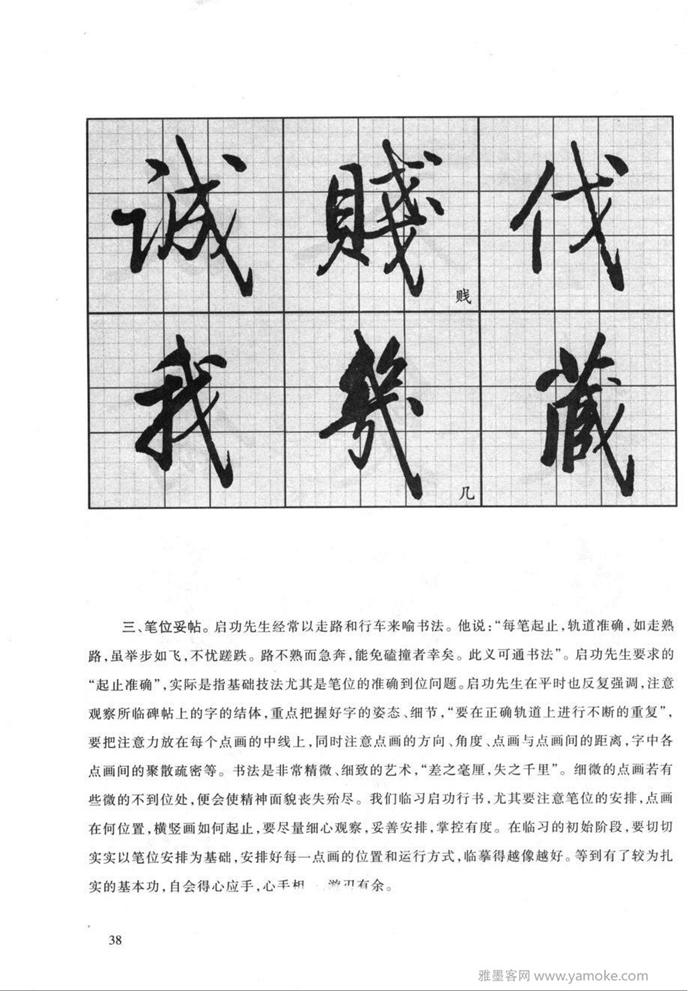 誠 賤 伐
贱
我 幾 藏
几
三、笔位妥帖。启功先生经常以走路和行车来喻书法。他说：“每笔起止，轨道准确，如走熟
路，虽举步如飞，不忧蹉跌。路不熟而急奔，能免磕撞者幸矣。此义可通书法”。启功先生要求的
“起止准确”，实际是指基础技法尤其是笔位的准确到位问题。启功先生在平时也反复强调，注意
观察所临碑帖上的字的结体，重点把握好字的姿态、细节，“要在正确轨道上进行不断的重复”，
要把注意力放在每个点画的中线上，同时注意点画的方向、角度、点画与点画间的距离，字中各
点画间的聚散疏密等。书法是非常精微、细致的艺术，“差之毫厘，失之千里”。细微的点画若有
些微的不到位处，便会使精神面貌丧失殆尽。我们临习启功行书，尤其要注意笔位的安排，点画
在何位置，横竖画如何起止，要尽量细心观察，妥善安排，掌控有度。在临习的初始阶段，要切切
实实以笔位安排为基础，安排好每一点画的位置和运行方式，临摹得越像越好。等到有了较为扎
实的基本功，自会得心应手，心手相 游刃有余。
38
雅墨客网 www.yamoke.com